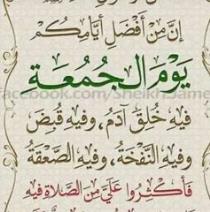 إِنَّ مِنْ أَفْضَلِ أَيَّامِكُمْ
يَوْمَ الْجُمُعَةِ
فِيهِ خُلِقَ آدَمُ، وَفِيهِ قُبِضَ
وَفِيهِ النَّفْخَةُ، وَفِيهِ الصَّعْقَةُ
فَأَكْثِرُوا عَلَيَّ مِنَ الصَّلَاةِ فِيهِ